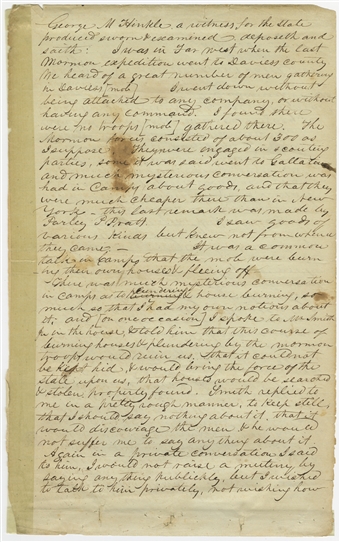 George M Hinkle a witness for the State
produced sworn & examined deposeth and
saith: I was in Far West when the last
Mormon expedition went to Daviess County
We heard of a great number of men gathering
in Daviess [mob] I went down without
being attached to any company, or without
having any command. I found there
were no troops [mob] gathered there. The
Mormon force consisted of about 300 as
I suppose. They were engaged in scouting
parties, some it was said, went to Gallatin
and much mysterious conversation was
had in Camps about goods, and that they
were much cheaper there than in New
York - this last remark was made by
Parley P Pratt. I saw goods of
various kinds but knew not from whence
they came. It was a common
talk in Camps that the mob were burn
ing their own houses & fleeing off
There was much mysterious conversation
in camps as to plundering & house burning, so
much so that I had my own notions about
it. and [on one occasion] I spoke to Mr Smith
Jr in the house, & told him that this course of
burning houses & plundering by the mormon
troops would ruin us, that it could not
be kept hid, & would bring the force of the
State upon us, that houses would be searched
& stolen property found. Smith replied to
me in a pretty rough manner, to keep still,
that I should say nothing about it, that it
would discourage the men & he would
not suffer me to say any thing about it
Again in a private conversation I said
to him, I would not raise a mutiny by
saying any thing publickly, but I wished
to talk to him privately, not wishing how